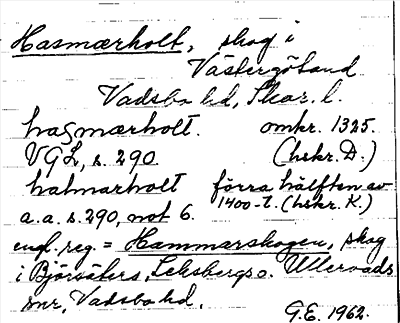 Hasmærholt, skog i
Västergötland
Vadsbo hd, Skar. l.
hasmærholt. omkr. 1325.
VGL, s. 290 (hskr. D.)
halmarholt förra hälften av
a.a. s. 290, not 6. 1400-t. (hskr. K.)
enl. reg. = Hammarskogen, skog
i Björsäters, Leksbergs o. Ullervads
snr, Vadsbo hd.
G.E. 1962.